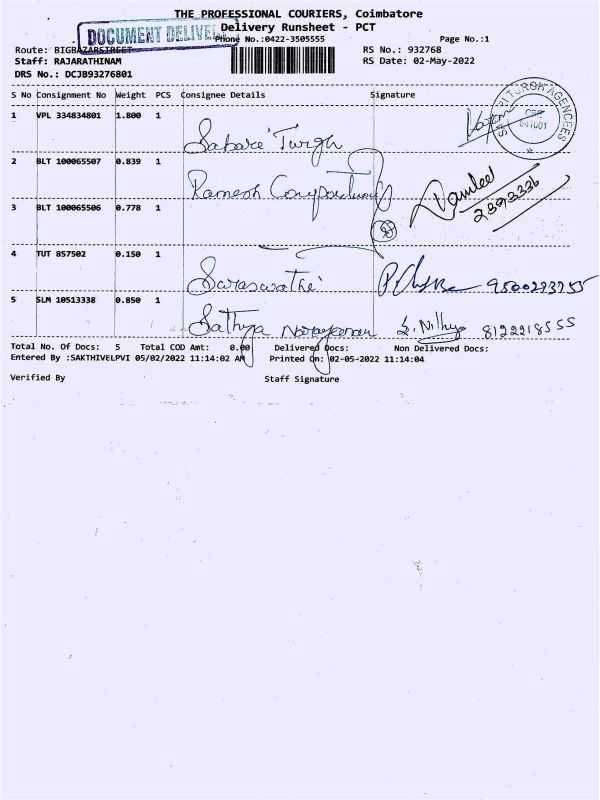 THE PROFESSIONAL COURIERS, Coimbatore
DOCUMENT DELIVE
Delivery Runsheet - PCT
Phone No.:0422-3505555
Page No.:1
Route: BIGBAZARSTREET
RS No.: 932768
Staff: RAJARATHINAM
RS Date: 02-May-2022
DRS No.: DCJB93276801
S No Consignment No Weight PCS Consignee Details Signature
1 VPL 334834801 1.800 1
AGENCEES
641001
2 BLT 100065507 0.839 1 Ramesh
3 BLT 100065506 0.778 1
4 TUT 857502 0.150 1
5 SLM 10513338 0.850 1 Sathya Narayanan S. Nithya 8122218555
Total No. Of Docs: 5 Total COD Amt: 0.00 Delivered Docs: Non Delivered Docs:
Entered By :SAKTHIVELPVI 05/02/2022 11:14:02 AM Printed On: 02-05-2022 11:14:04
Verified By Staff Signature